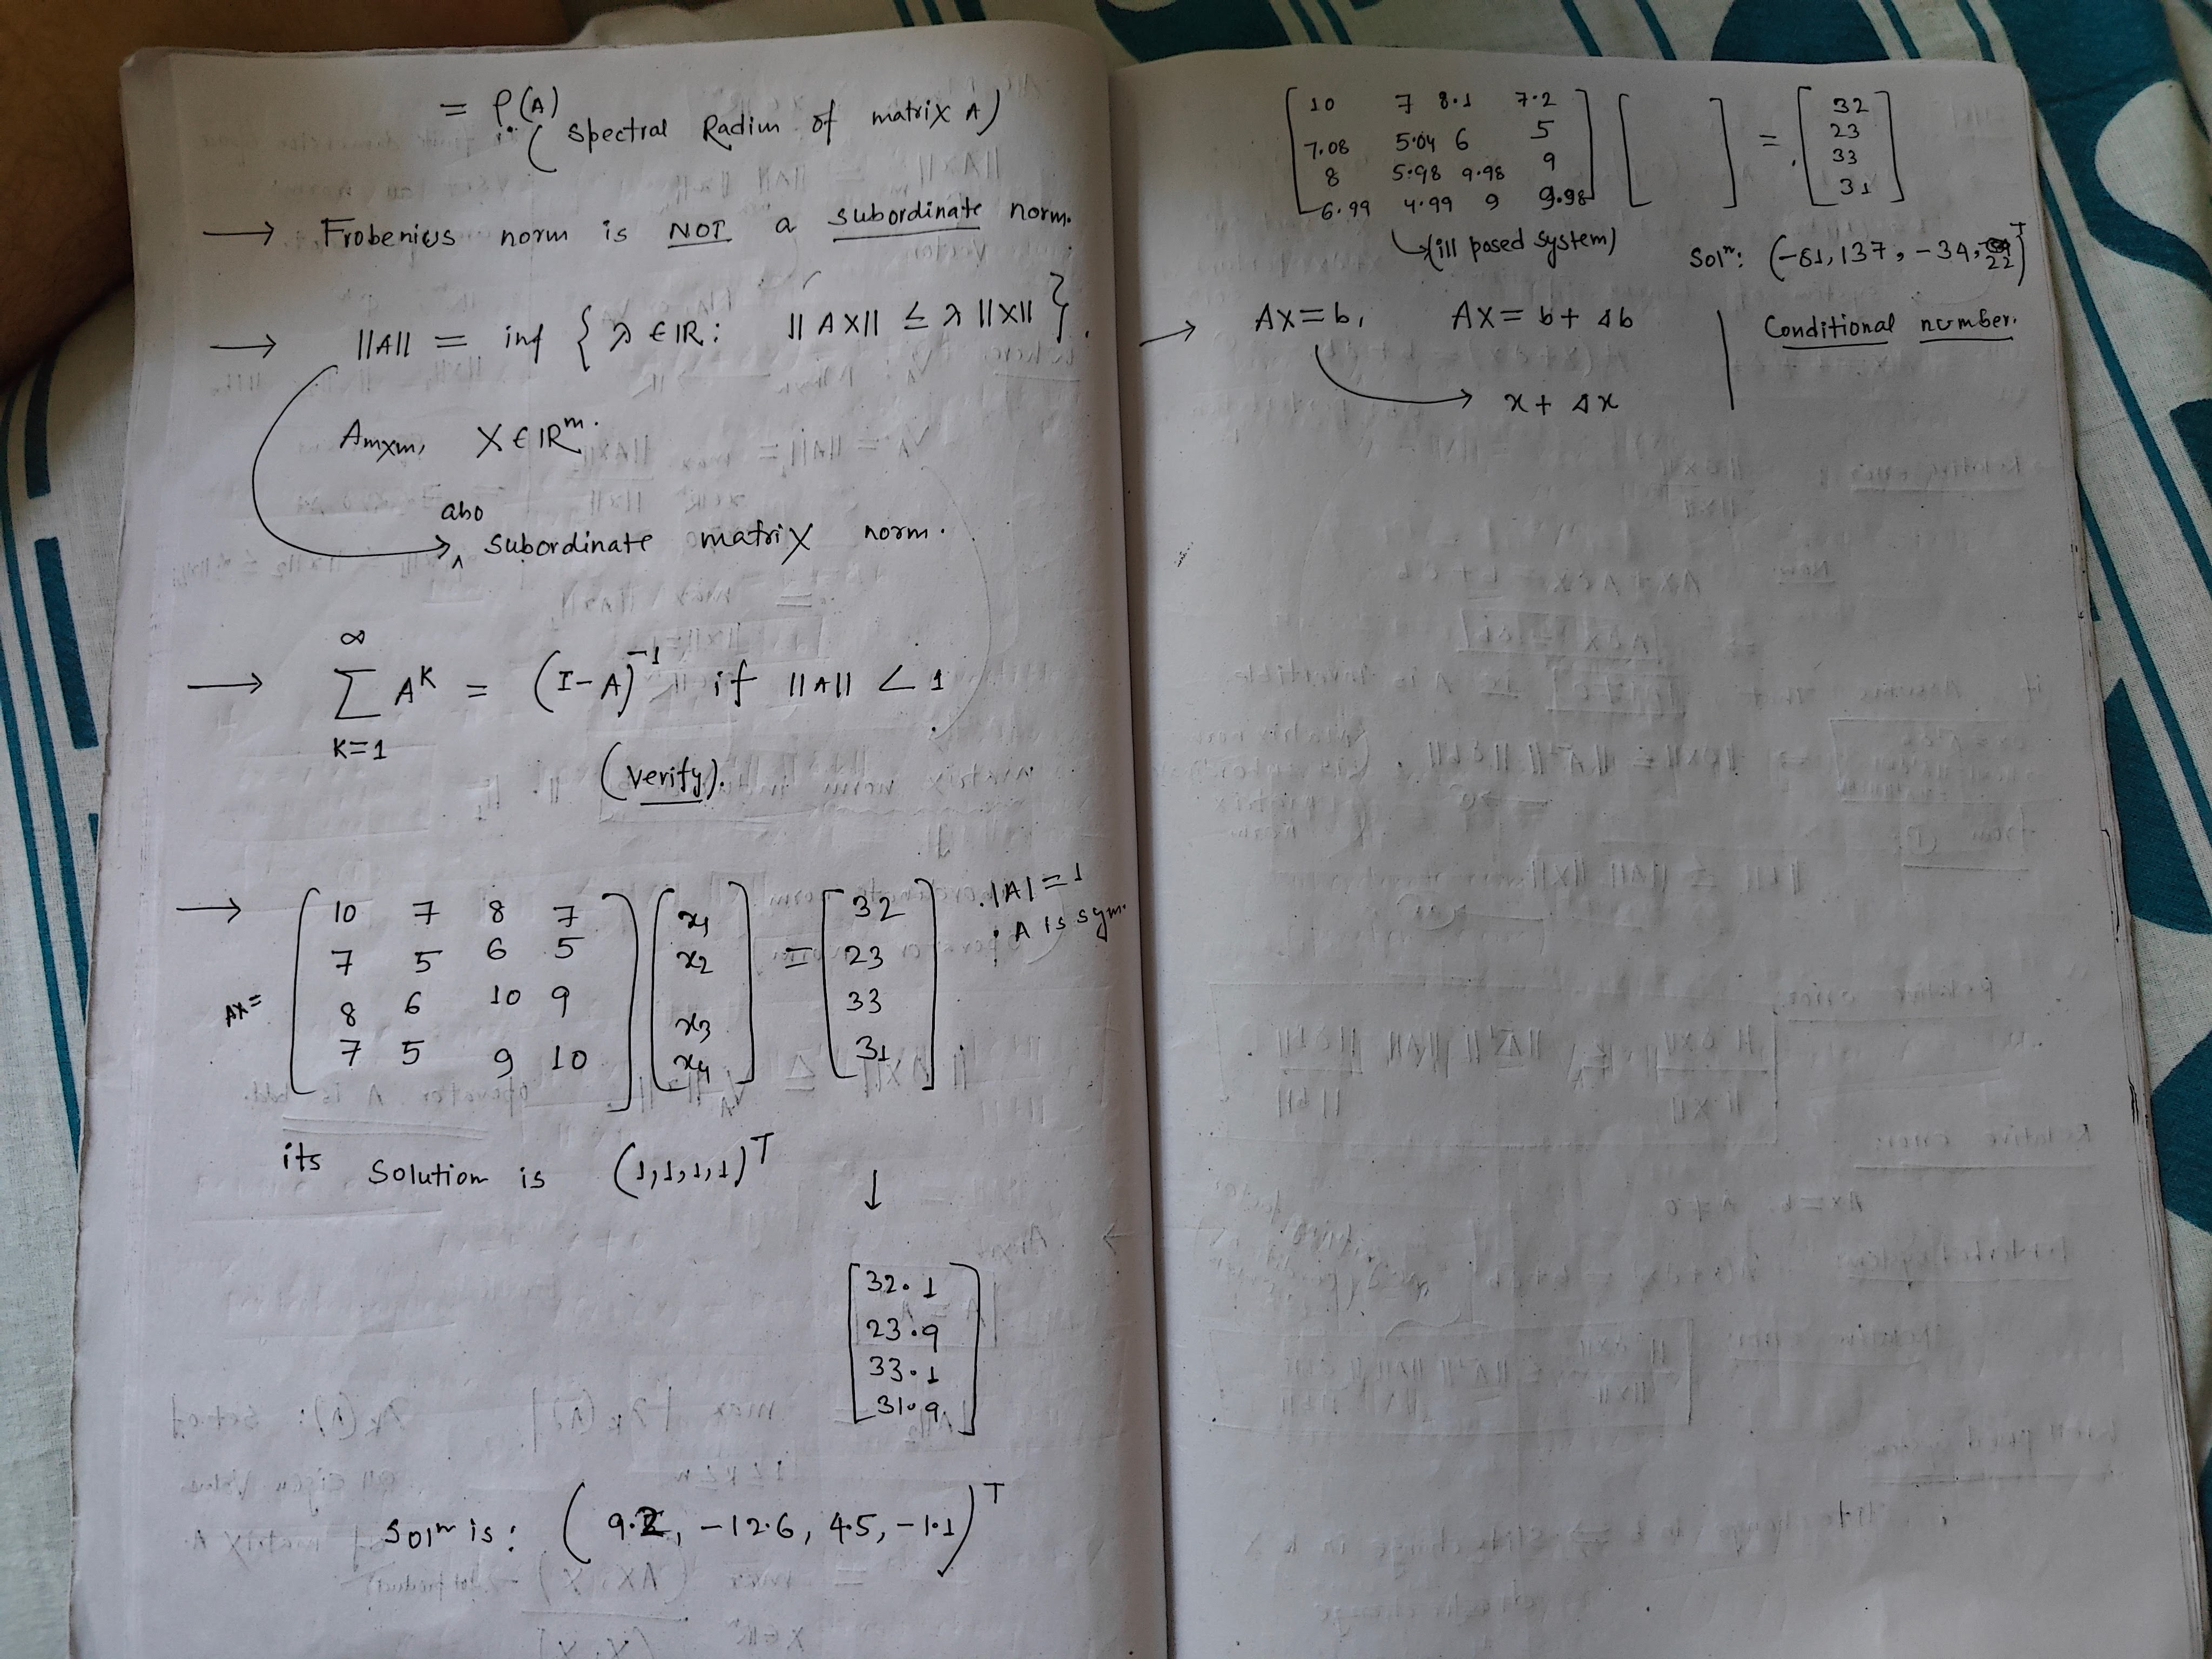 = ρ(A)
( Spectral Radius of matrix A)
→ Frobenius norm is NOT a subordinate norm.
→ ||A|| = inf { λ ∈ IR : || AX|| ≤ λ ||X|| }.
Amxm, X ∈ IR^m.
also
→ ^ subordinate matrix norm.
→ ∞ Σ K=1 A^K = (I-A)^-1 if ||A|| < 1
(verify).
→ 10 7 8 7 x1 32 . |A| = 1
7 5 6 5 x2 = 23 . A is sym.
AX= 8 6 10 9 x3 33
7 5 9 10 x4 31
its Solution is (1,1,1,1)^T ↓
32.1
23.9
33.1
31.9
Solⁿ is: (9.2, -12.6, 4.5, -1.1)^T
10 7 8.1 7.2 32
7.08 5.04 6 5 = 23
8 5.98 9.98 9 33
6.99 4.99 9 9.98 31
↳(ill posed system) Solⁿ: (-81, 137, -34, 22)^T
→ AX=b, AX = b + Δb | Conditional number.
→ x + Δx